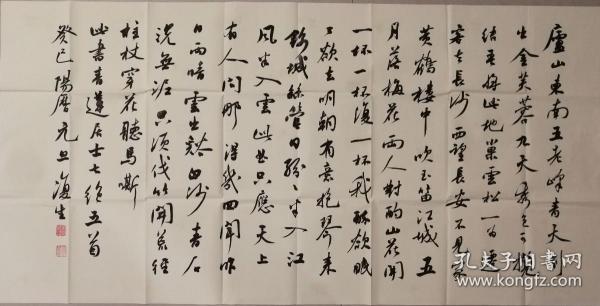 廬山東南五老峰青天削
出金芙蓉九天秀色可攬
結吾將此地巢雲松一為遷
客去長沙西望長安不見家
黃鶴樓中吹玉笛江城五
月落梅花兩人對酌山花開
一杯一杯復一杯我醉欲眠
欲去明朝有意抱琴来
錦城絲管日紛紛半入江
風半入雲此曲只應天上
有人間那得幾回聞
日雨晴雲出谿白沙青石
洗無泥只須伐竹開荒徑
柱杖穿花聽馬嘶
此書青蓮居士七絕五首
癸巳陽曆元旦復生
孔夫子旧书网